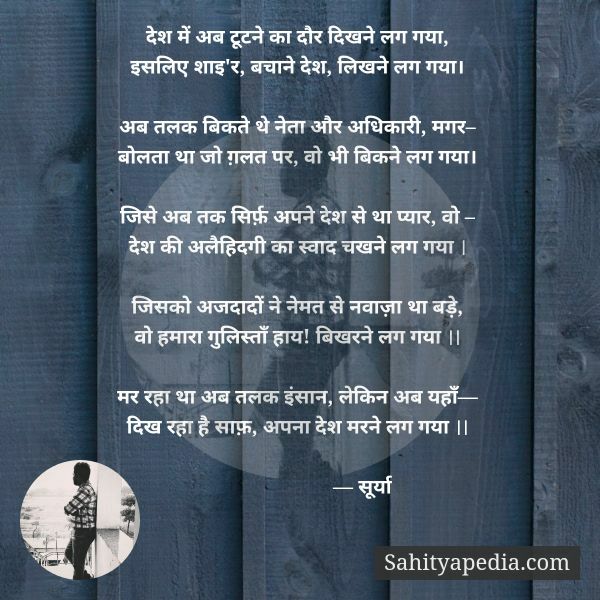 देश में अब टूटने का दौर दिखने लग गया,
इसलिए शाइ'र, बचाने देश, लिखने लग गया।
अब तलक बिकते थे नेता और अधिकारी, मगर–
बोलता था जो ग़लत पर, वो भी बिकने लग गया।
जिसे अब तक सिर्फ़ अपने देश से था प्यार, वो –
देश की अलैहिदगी का स्वाद चखने लग गया |
जिसको अजदादों ने नेमत से नवाज़ा था बड़े,
वो हमारा गुलिस्ताँ हाय! बिखरने लग गया ||
मर रहा था अब तलक इंसान, लेकिन अब यहाँ—
दिख रहा है साफ़, अपना देश मरने लग गया ||
— सूर्या
Sahityapedia.com